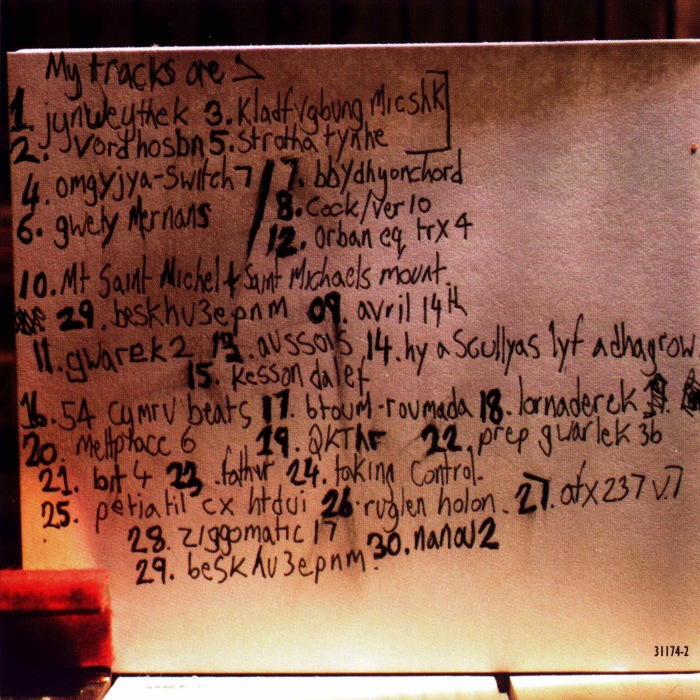 My tracks are >
1. jynweythek 3. Kladfvgbung Micshk
2. vordhosbn 5. Strotha tynhe
4. omgyjya-Switch 7 / 7. bbydhyonchord
6. gwely Mernans 8. Cock/ver 10
12. orban eq trx 4
10. Mt Saint Michel + Saint Michaels mount.
29. beskhu3epnm 09. avril 14th
11. gwarek 2 13. aussois 14. hy a Scullyas lyf adhagrow
15. kesson dalef
16. 54 cymru beats 17. btoum-roumada 18. lornaderek
20. meltphace 6 19. QKThr 22. prep gwarlek 3b
21. bit 4 23. father 24. taking Control.
25. petiatil cx htdui 26. ruglen holon. 27. afx237 v.7
28. ziggomatic 17 30. nanou2
29. beskhu3epnm.
31174-2